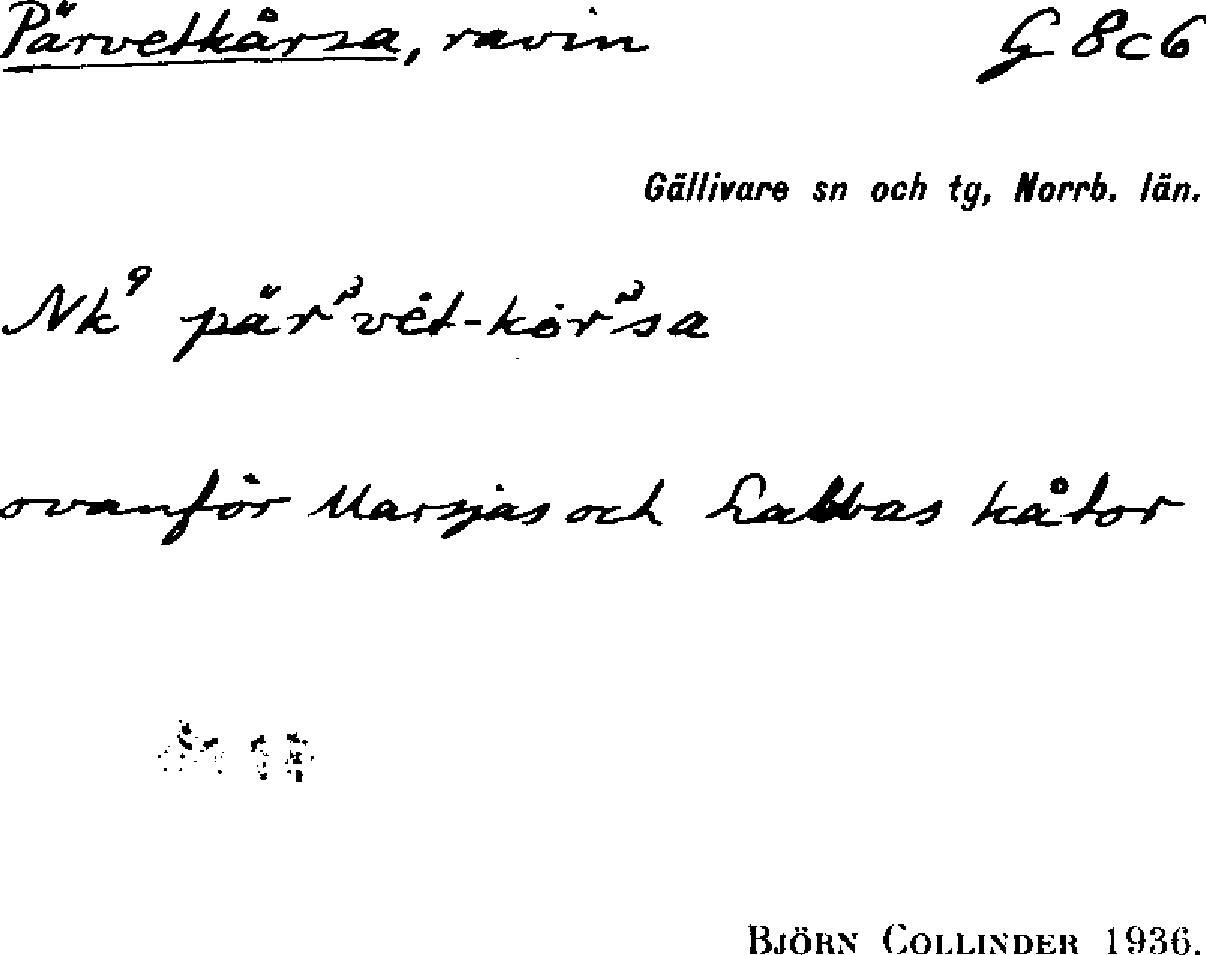 Pärvetkårsa, ravin G 8c6
Gällivare sn och tg, Norrb. län.
Nk⁹ pärᵊvėt-kȯrᵊsa
ovanför Marsjas och Labbas kåtor
BJÖRN COLLINDER 1936.